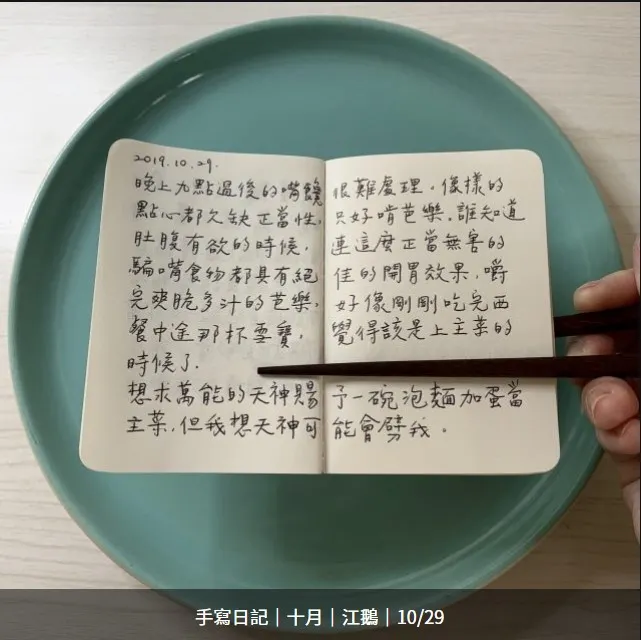 2019.10.29.
晚上九點過後的嘴饞很難處理。像樣的
點心都欠缺正當性,只好啃芭樂。誰知道
肚腹有欲的時候,連這麼正當無害的
騙嘴食物都具有絕佳的開胃效果,嚼
完爽脆多汁的芭樂,好像剛剛吃完西
餐中途那杯雪寶,覺得該是上主菜的
時候了.
想求萬能的天神賜予一碗泡麵加蛋當
主菜,但我想天神可能會劈我。
手寫日記|十月|江鵝|10/29